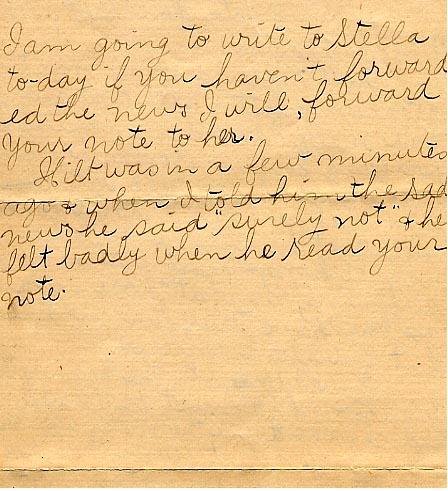 I am going to write to Stella
to-day if you haven't forward
ed the news I will, forward
your note to her.
Hilt was in a few minutes
ago & when I told him the sad
news he said "surely not" & he
felt badly when he read your
note.